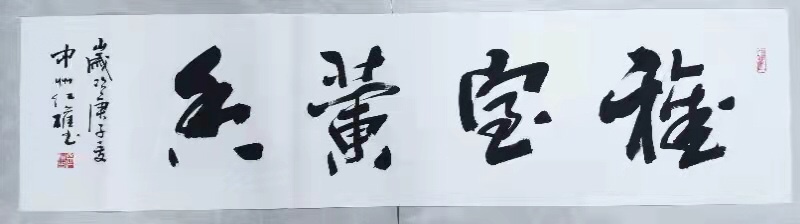 雅室蘭香
歲次庚子夏
中州仁書